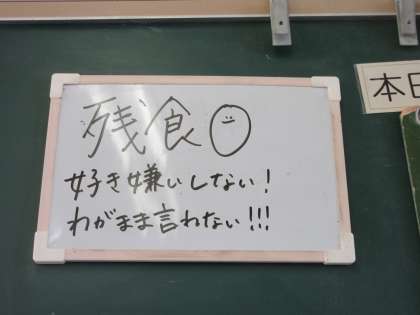 残食0
好き嫌いしない!
わがまま言わない!!!
本日